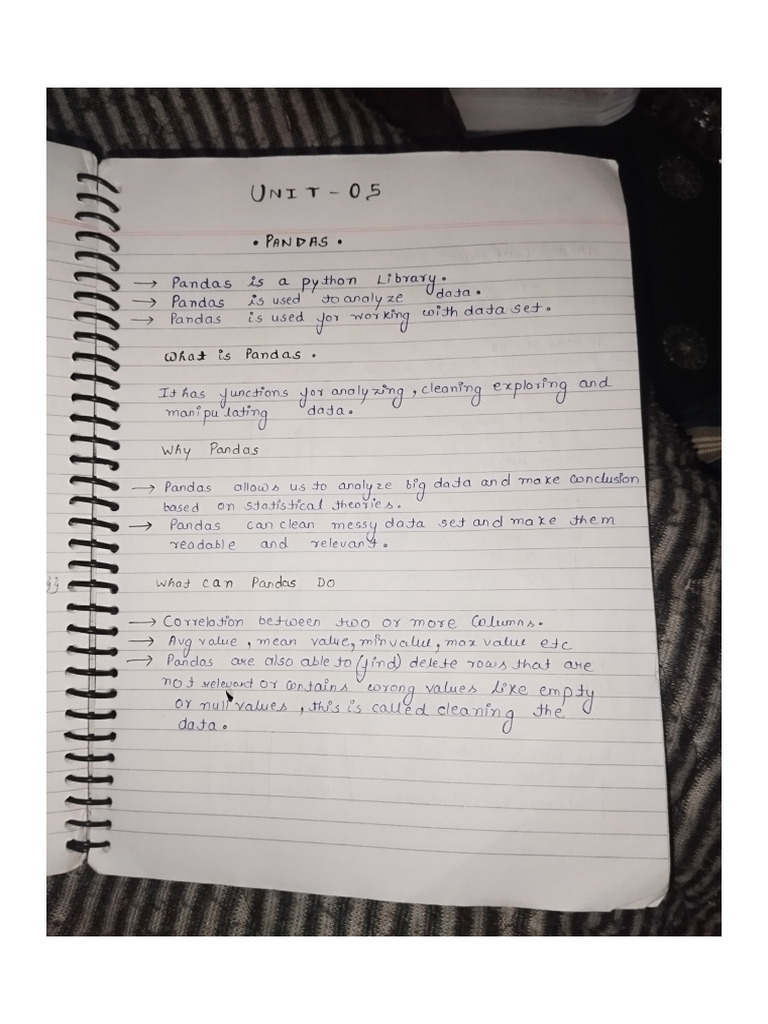 UNIT - 05
• PANDAS •
→ Pandas is a python Library.
→ Pandas is used to analyze data.
→ Pandas is used for working with data set.
What is Pandas.
It has functions for analyzing, cleaning exploring and
manipulating data.
Why Pandas
→ Pandas allows us to analyze big data and make conclusion
based on statistical theories.
→ Pandas can clean messy data set and make them
readable and relevant.
What can Pandas Do
→ Correlation between two or more columns.
→ Avg value, mean value, min value, max value etc
→ Pandas are also able to (find) delete rows that are
not relevant or contains wrong values like empty
or null values, this is called cleaning the
data.